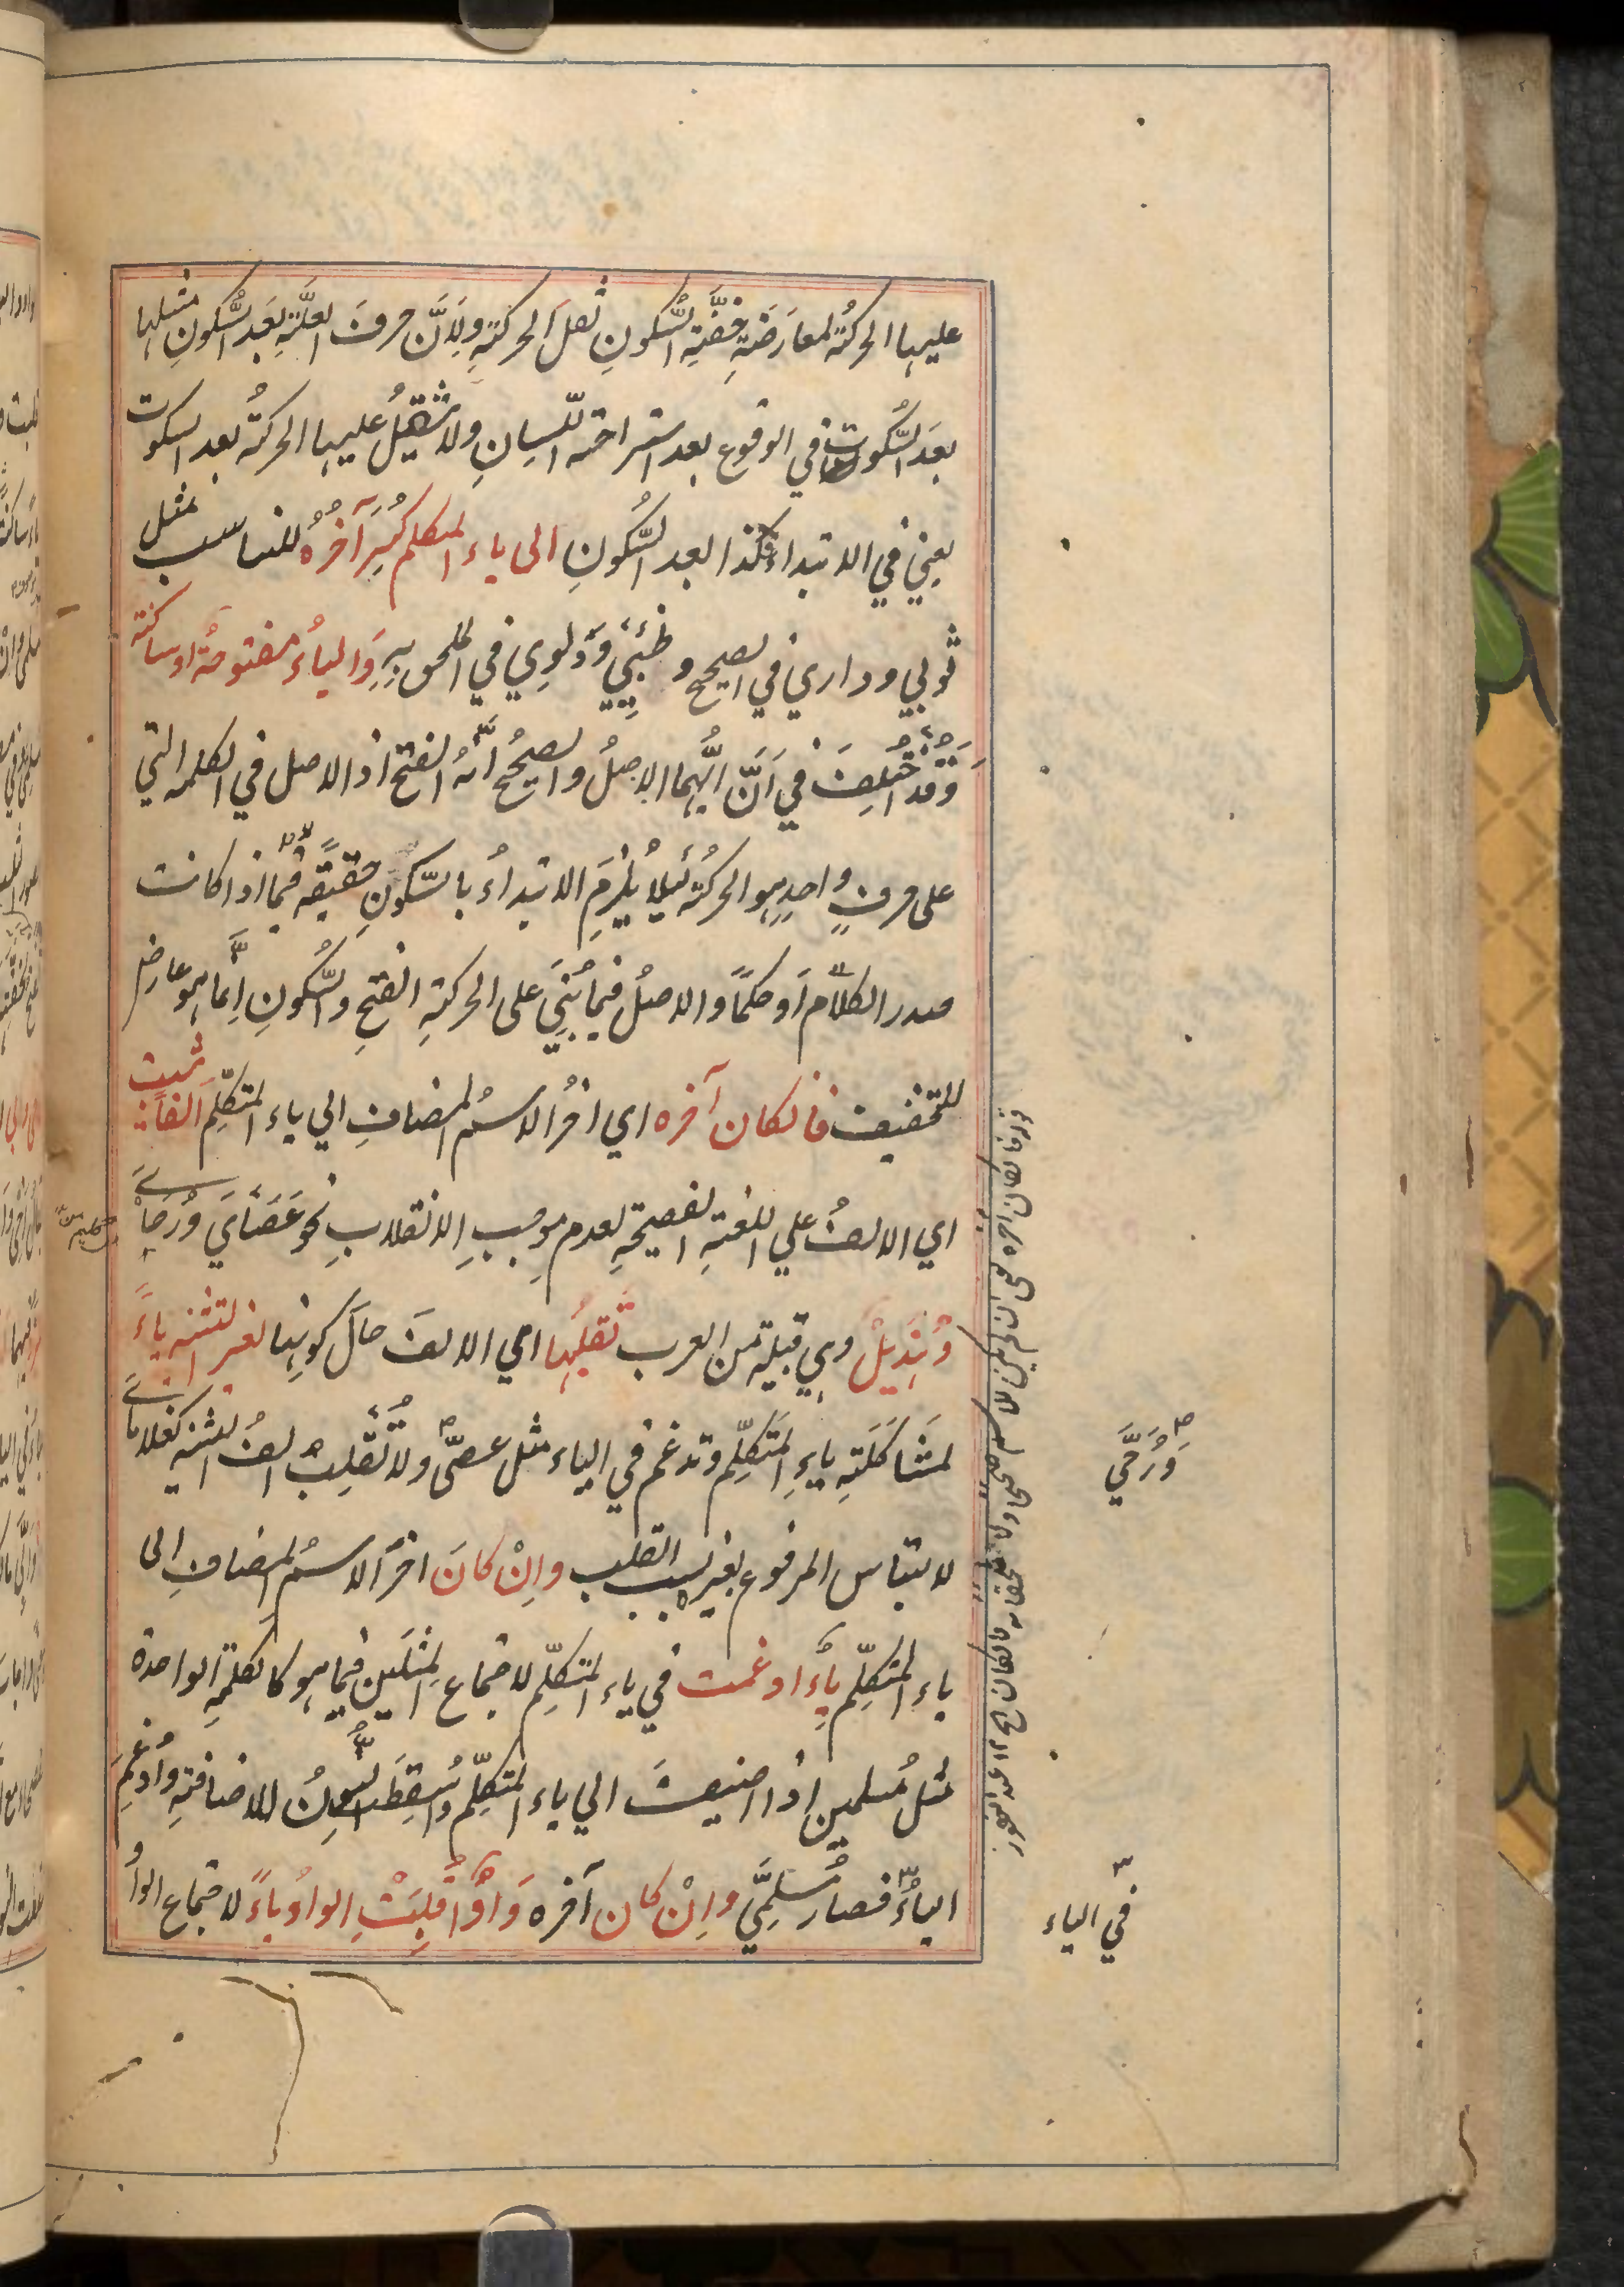 عليها الحركةُ لمعارَضَةِ خفَّةِ السُّكونِ ثقلَ الحركةِ ولِاَنَّ حرفَ العلَّةِ بَعدَ السُّكونِ مثلها
بعدَ السُّكوتِ في الوقوع بعد استراحة اللّسانِ ولا تثقيلُ عليها الحركةُ بعد السكوت
يعني في الابتداء فكذا بعد السُّكونِ الى ياء المتكلم كُسِرَ آخرُهُ للتناسب مثل
ثوبي وداري في الصحيح و ظبيي وَدلوِي في الملحق بِهِ وَالياءُ مفتوحةٌ او ساكنة
وَقد اختُلِفَ في اَنَّ ايُّهما الاصلُ والصحيحُ انهُ الفتح اذ الاصل في الكلمه التي
على حرفٍ واحدٍ هو الحركةُ لئيلا يلزمَ الابتداءُ بالسّكونِ حقيقةً فيما اذا كانت
صدر الكلام اَو حكمًا والاصلُ فيما بُنِيَ على الحركةِ الفتحِ والسُّكونِ اِنَّما هو عارض
للتخفيف فانكان آخره اي اخرُ الاسمُ المضافِ الي ياء المتكلِّمِ الفًا ثبت
اي الالفُ علي اللغةِ الفصيحةِ لعدم موجبِ الانقلابِ نحوَ عَصَايَ وَرحايَ
وَهُذَيلْ وهي قبيلة من العرب تقلبُها اي الالفَ حالَ كونها لغير التثنيه ياءً
لمشاكَلَتِهِ ياءِ المتكلِّم وتدغم في الياء مثل عصيَّ ولا تُقلبُ الفُ التثنيه كغلاماي
لالتباس المرفوع بغيره بسبب القلب واِنْ كانَ اخرُ الاسمُ المضافِ الى
ياء المتكلِّم ياءً ادغمت في ياء المتكلِّم لاجتماع المثلَين فيما هو كالكلمةِ الواحدة
مثلُ مُسلمين اذا اضيفتَ الي ياء المتكلِّم واُسقِطَ النونُ للاضافةِ واُدغِمَ
الياءُ فصار مُسلميَّ واِنْ كان آخره وَاوًا قُلِبَتْ الواوُ ياءً لاجتماع الواو
وَرَحَيَّ
في الياء